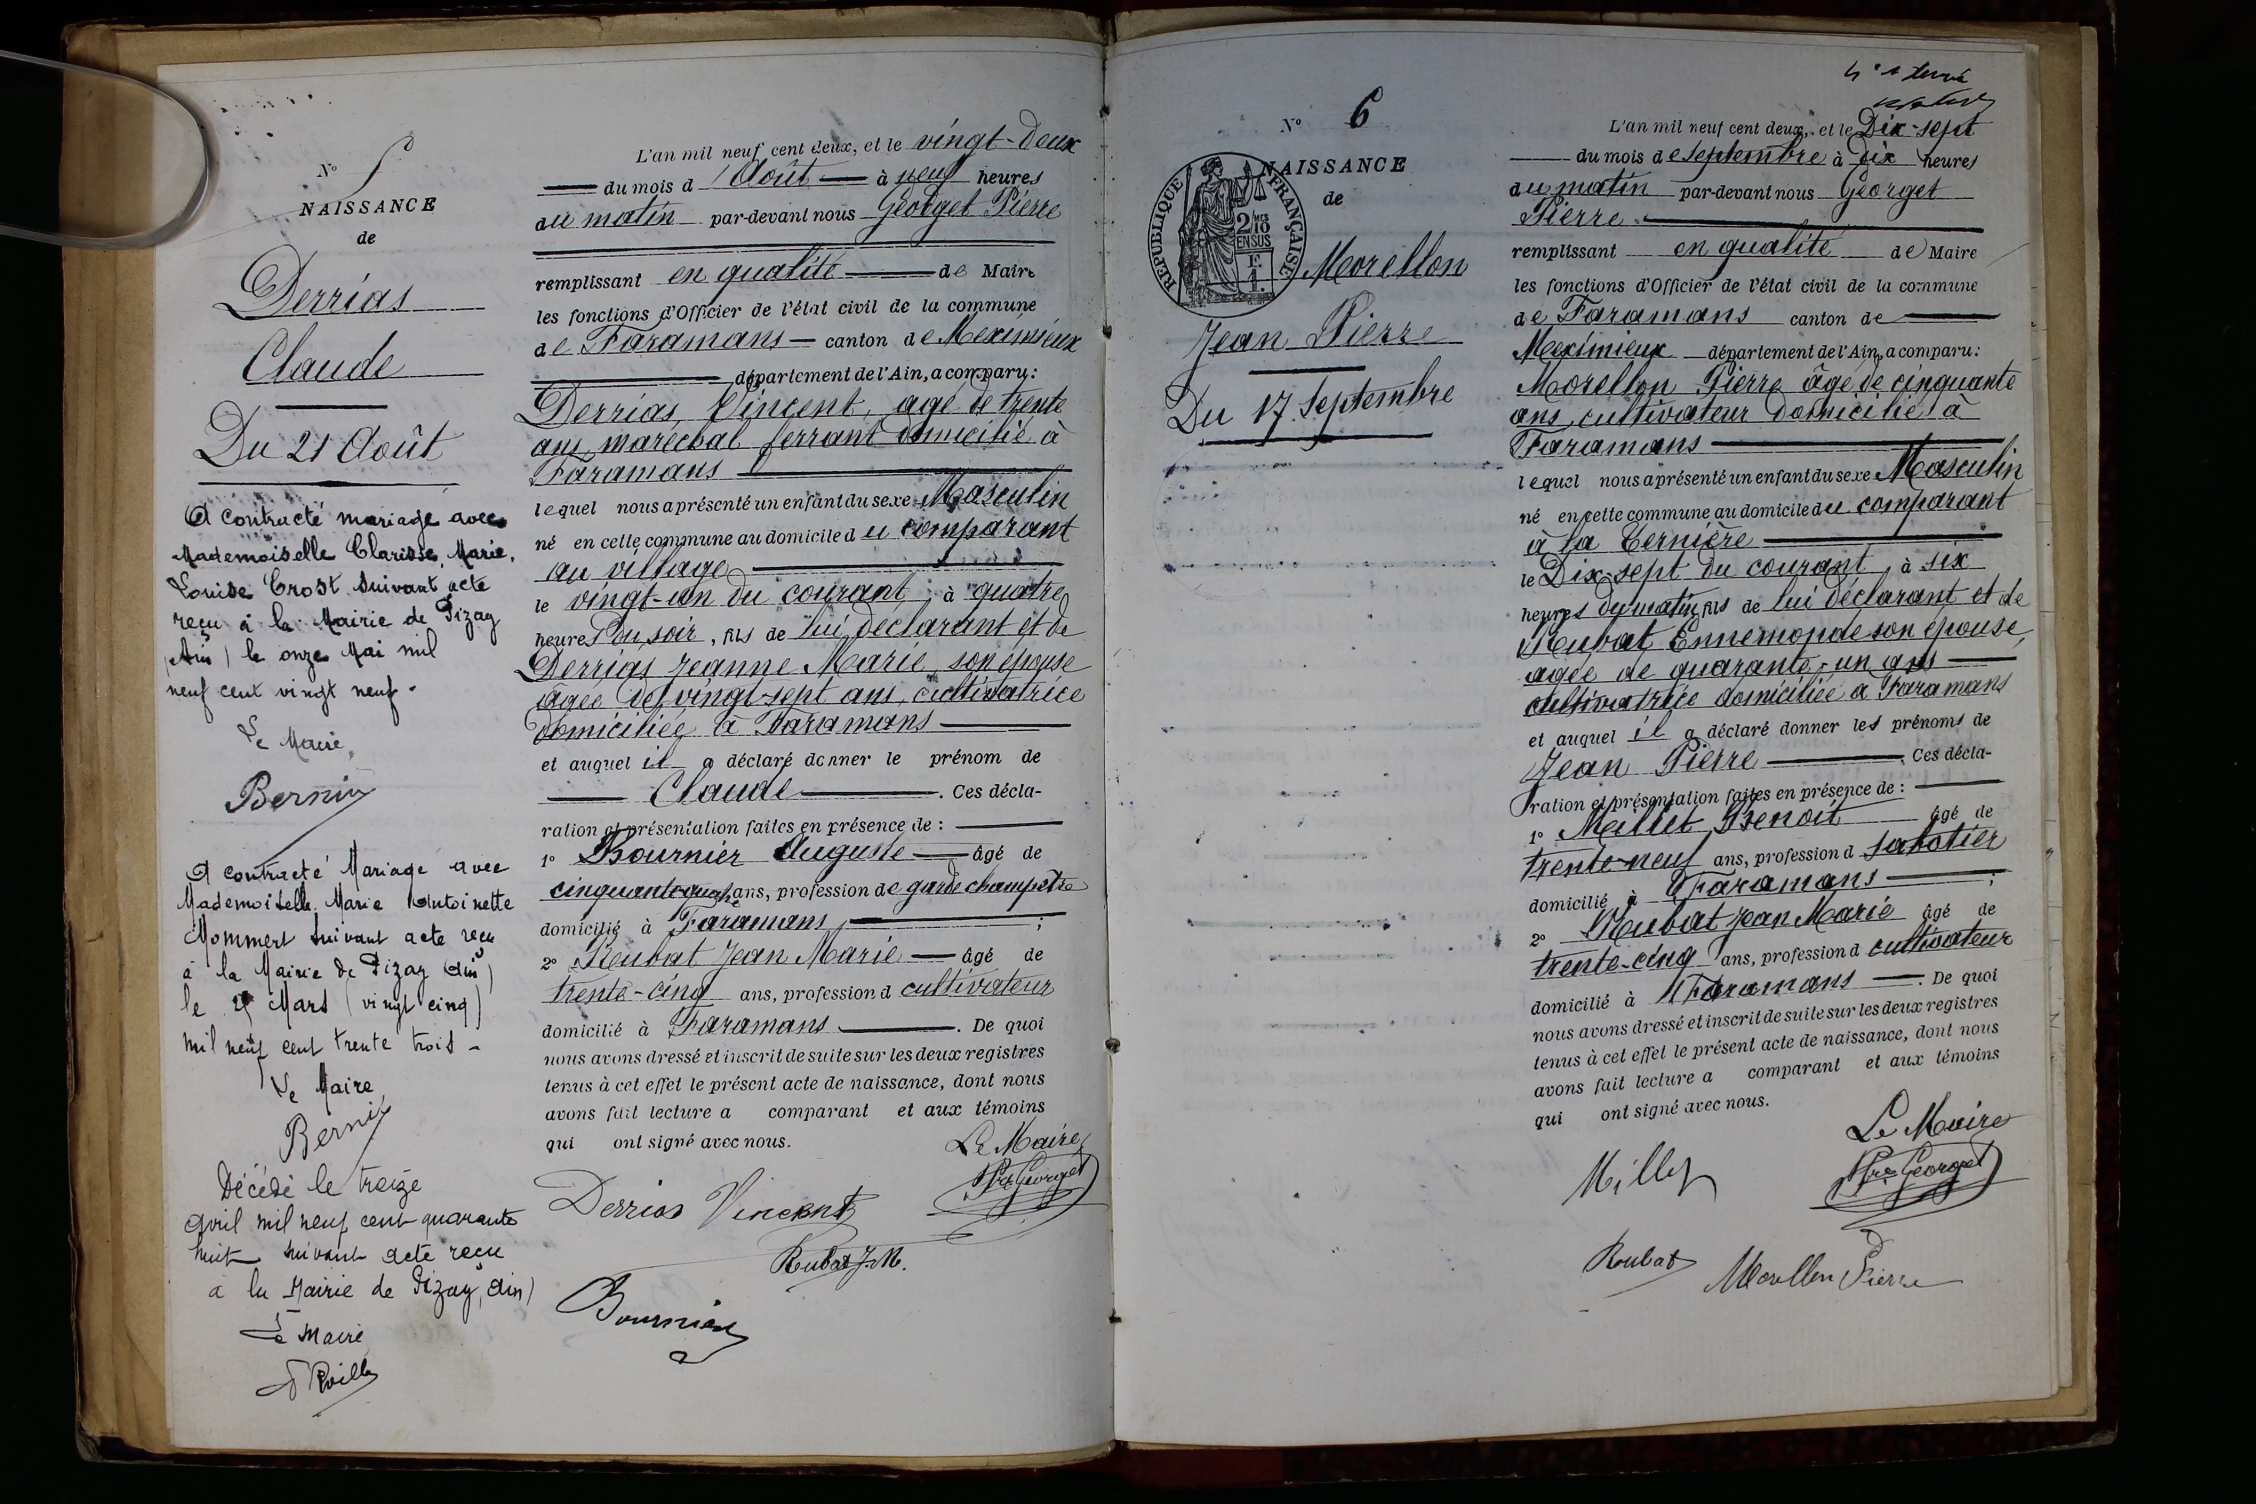 N° 5
NAISSANCE
de
Derrias
Claude
Du 21 Août
A contracté mariage avec
Mademoiselle Clarisse, Marie,
Louise Crost suivant acte
reçu à la Mairie de Pizay
(Ain) le onze Mai mil
neuf cent vingt neuf.
Le Maire,
Bernin
A contracté Mariage avec
Mademoiselle Marie Antoinette
Mommert suivant acte reçu
à la Mairie de Pizay (Ain)
le Mars (vingt cinq)
mil neuf cent trente trois -
Le Maire,
Bernin
Décédé le treize
Avril mil neuf cent quarante
huit suivant acte reçu
à la Mairie de Pizay, Ain)
Le Maire
L'an mil neuf cent deux, et le vingt-deux
du mois d Août à neuf heures
du matin par-devant nous Georget Pierre
remplissant en qualité de Maire
les fonctions d'Officier de l'état civil de la commune
de Faramans canton de Meximieux
département de l'Ain, a comparu:
Derrias Vincent, âgé de trente
ans, maréchal ferrant domicilié à
Faramans
lequel nous a présenté un enfant du sexe Masculin
né en cette commune au domicile du comparant
au village
le vingt-un du courant, à quatre
heures du soir, fils de lui déclarant et de
Derrias Jeanne Marie, son épouse
âgée de vingt-sept ans, cultivatrice
domiciliée à Faramans
et auquel il a déclaré donner le prénom de
Claude. Ces décla-
ration et présentation faites en présence de :
1° Bournier Auguste âgé de
cinquante-quatre ans, profession de garde champêtre
domicilié à Faramans ;
2° Rubat Jean Marie âgé de
trente-cinq ans, profession d cultivateur
domicilié à Faramans. De quoi
nous avons dressé et inscrit de suite sur les deux registres
tenus à cet effet le présent acte de naissance, dont nous
avons fait lecture a comparant et aux témoins
qui ont signé avec nous.
Le Maire
Pre Georget
Derrias Vincent
Rubat J.M.
Bournier
N° 6
NAISSANCE
de
RÉPUBLIQUE FRANÇAISE
2/10 MES
EN SUS
Morellon
Jean Pierre
Du 17 Septembre
L'an mil neuf cent deux, et le Dix-sept
du mois de Septembre à dix heures
du matin par-devant nous Georget
Pierre
remplissant en qualité de Maire
les fonctions d'Officier de l'état civil de la commune
de Faramans canton de
Meximieux département de l'Ain, a comparu:
Morellon Pierre âgé de cinquante
ans, cultivateur domicilié à
Faramans
lequel nous a présenté un enfant du sexe Masculin
né en cette commune au domicile du comparant
à la
le Dix-sept du courant, à six
heures du matin, fils de lui déclarant et de
Rubat Ennemonde son épouse,
âgée de quarante-un ans
cultivatrice domiciliée à Faramans
et auquel il a déclaré donner les prénoms de
Jean Pierre. Ces décla-
ration et présentation faites en présence de :
1° Millet Benoît âgé de
trente-neuf ans, profession d sabotier
domicilié à Faramans ;
2° Rubat Jean Marie âgé de
trente-cinq ans, profession d cultivateur
domicilié à Faramans. De quoi
nous avons dressé et inscrit de suite sur les deux registres
tenus à cet effet le présent acte de naissance, dont nous
avons fait lecture a comparant et aux témoins
qui ont signé avec nous.
Le Maire
Pre Georget
Millet
Rubat
Morellon Pierre